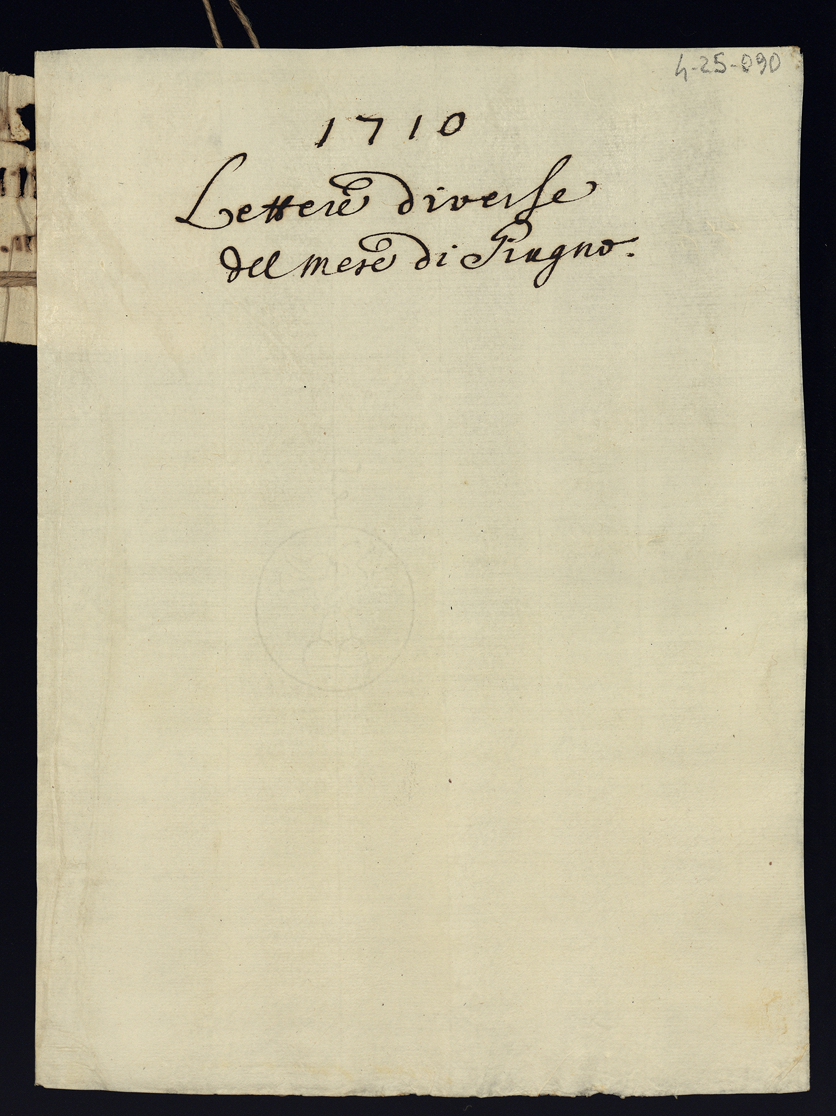 4-25-090
1710
Lettere diverse
del mese di Giugno.